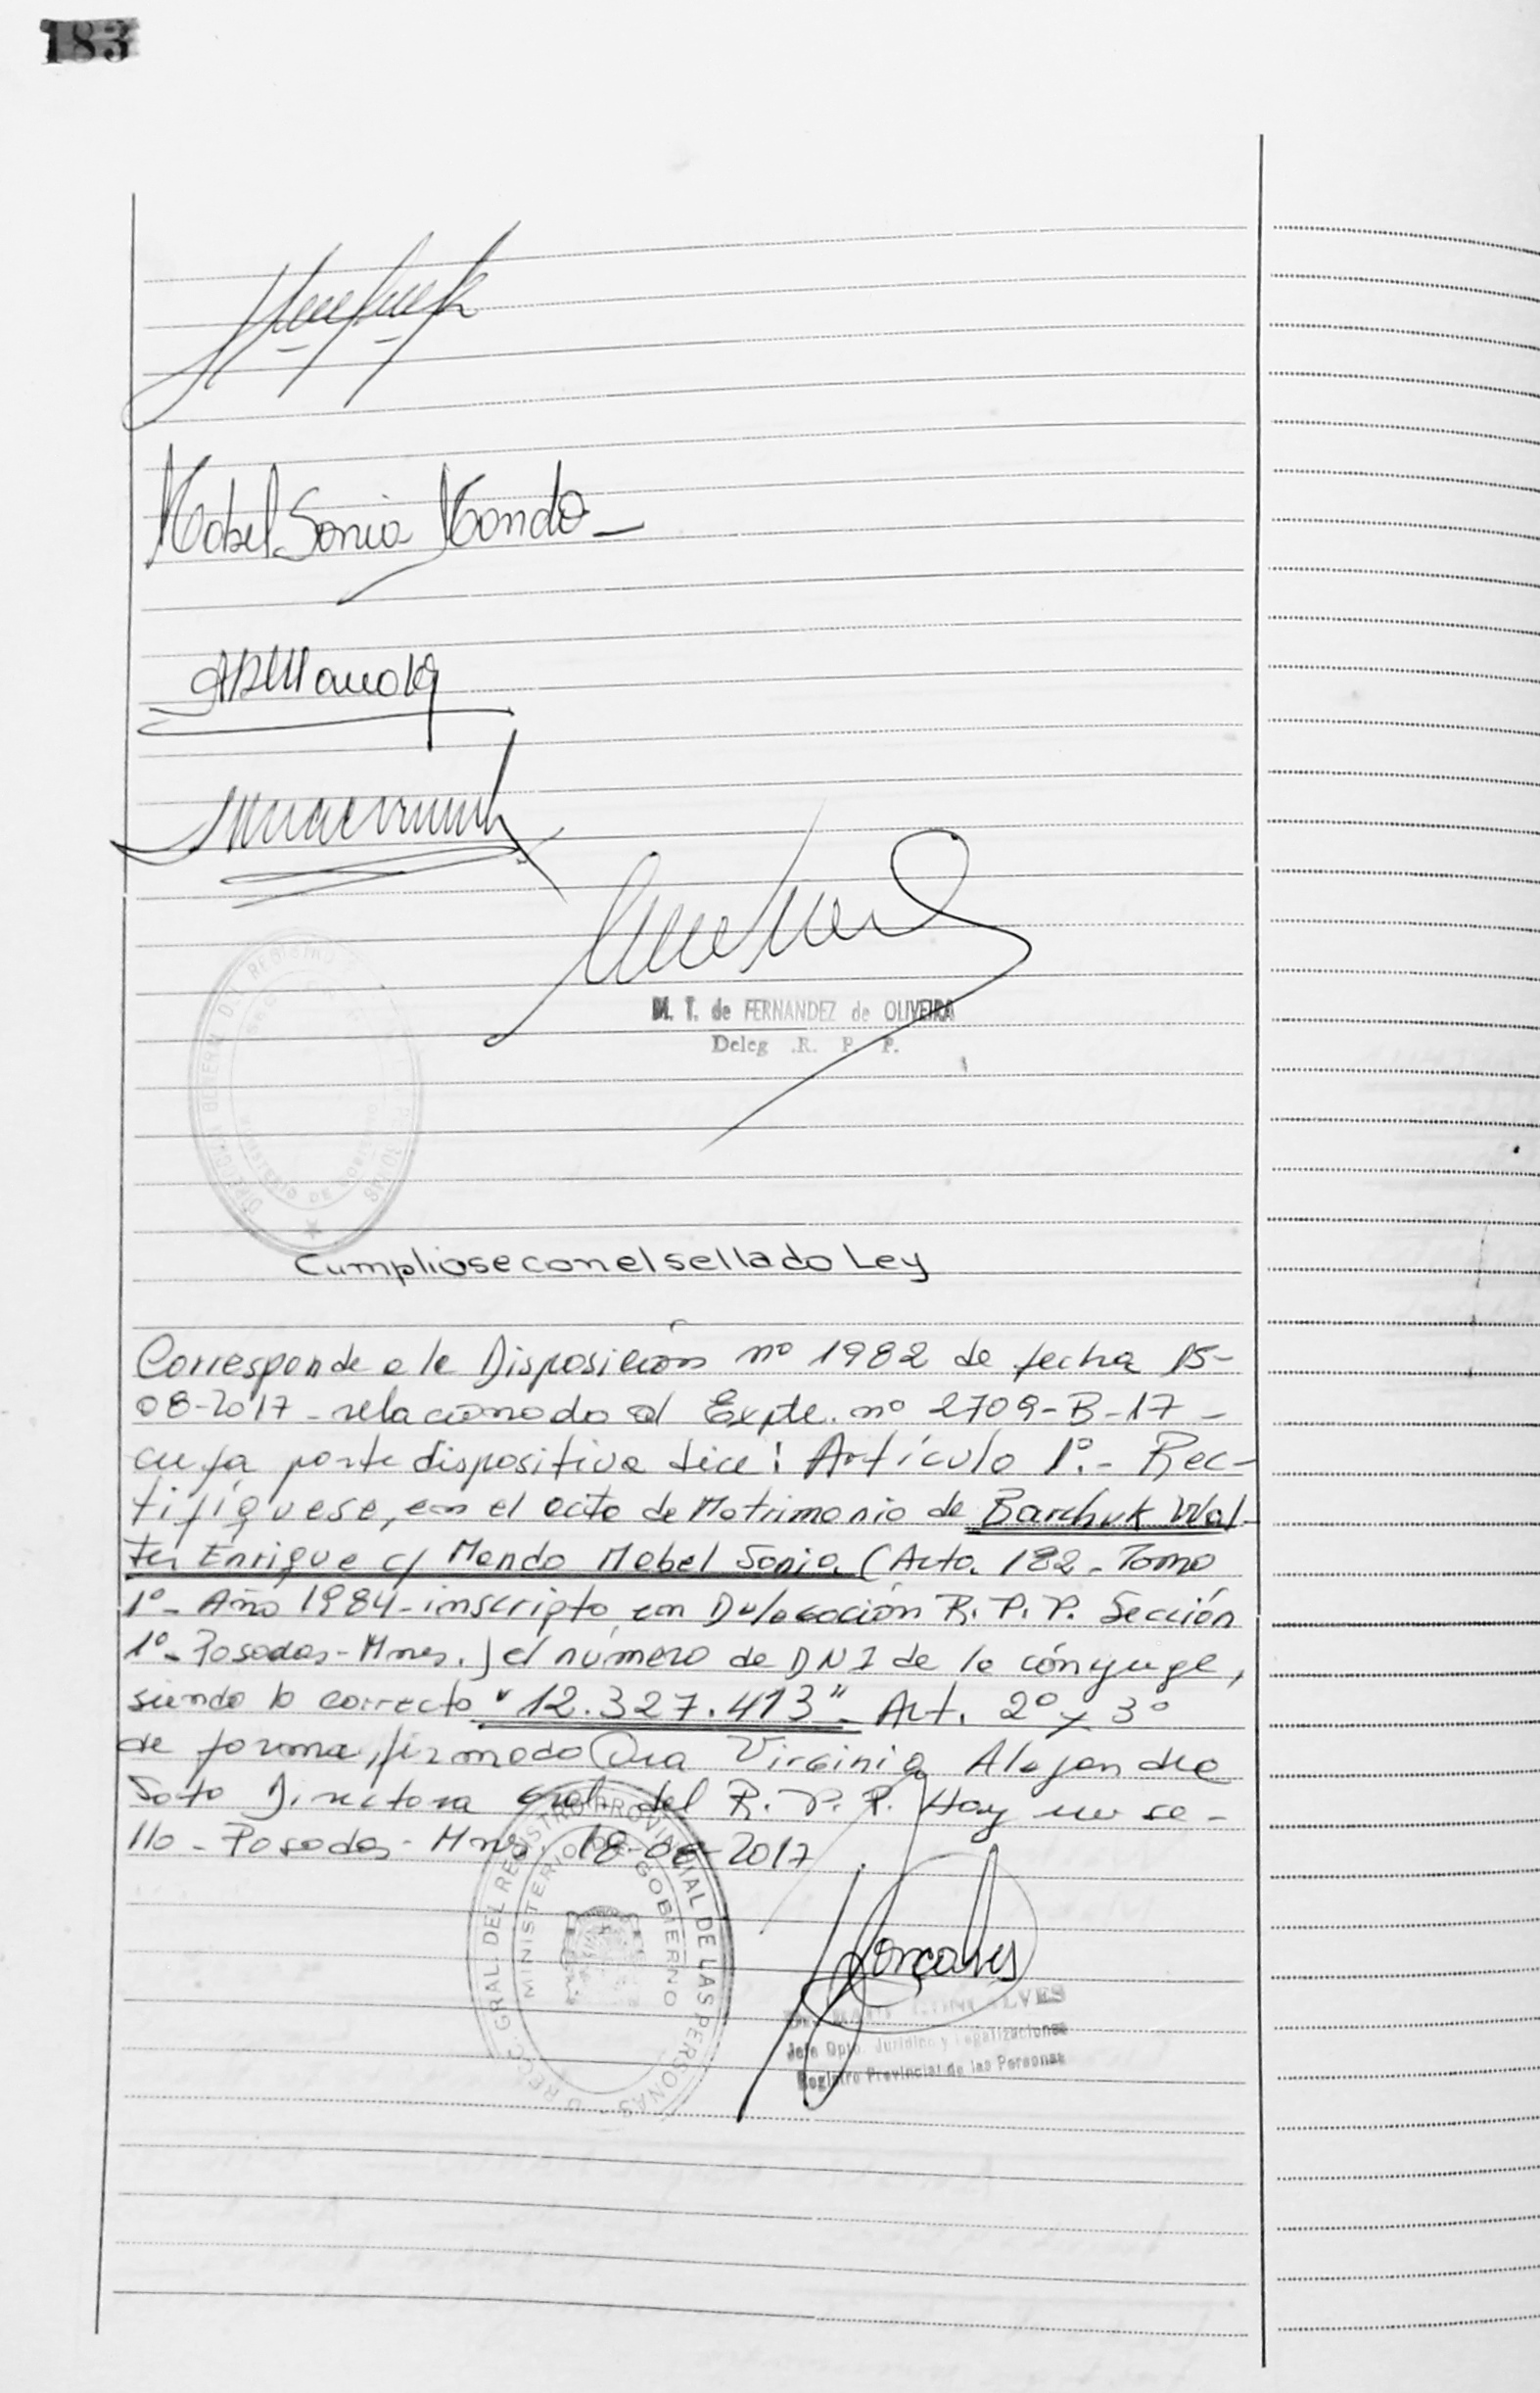 183
Mabel Sonia Mondo
M. T. de FERNANDEZ de OLIVEIRA
Deleg .R. P. P.
DIRECCION GENERAL DEL REGISTRO
MINISTERIO DE GOBIERNO
Cumpliose con el sellado Ley
Corresponde a la Disposición nº 1982 de fecha 15-
08-2017 - relacionado al Expte. nº 2709-B-17 -
cuya parte dispositiva dice: Artículo 1º.- Rec-
tifíquese, en el acta de Matrimonio de Barchuk Wal-
ter Enrique c/ Mondo Mabel Sonia (Acta. 182 - Tomo
1º - Año 1984 - inscripta en Delegación R. P. P. Sección
1º - Posadas - Mnes.) el número de DNI de la cónyuge,
siendo lo correcto "12.327.413" - Art. 2º y 3º
de forma, firmado Dra Virginia Alejandra
Soto Directora Gral. del R. P. P. Hay un se-
llo - Posadas - Mnes. 18-08-2017
DIRECC. GRAL. DEL REGISTRO PROVINCIAL DE LAS PERSONAS
MINISTERIO DE GOBIERNO
Gonçalves
Jefe Dpto. Jurídico y Legalizaciones
Registro Provincial de las Personas